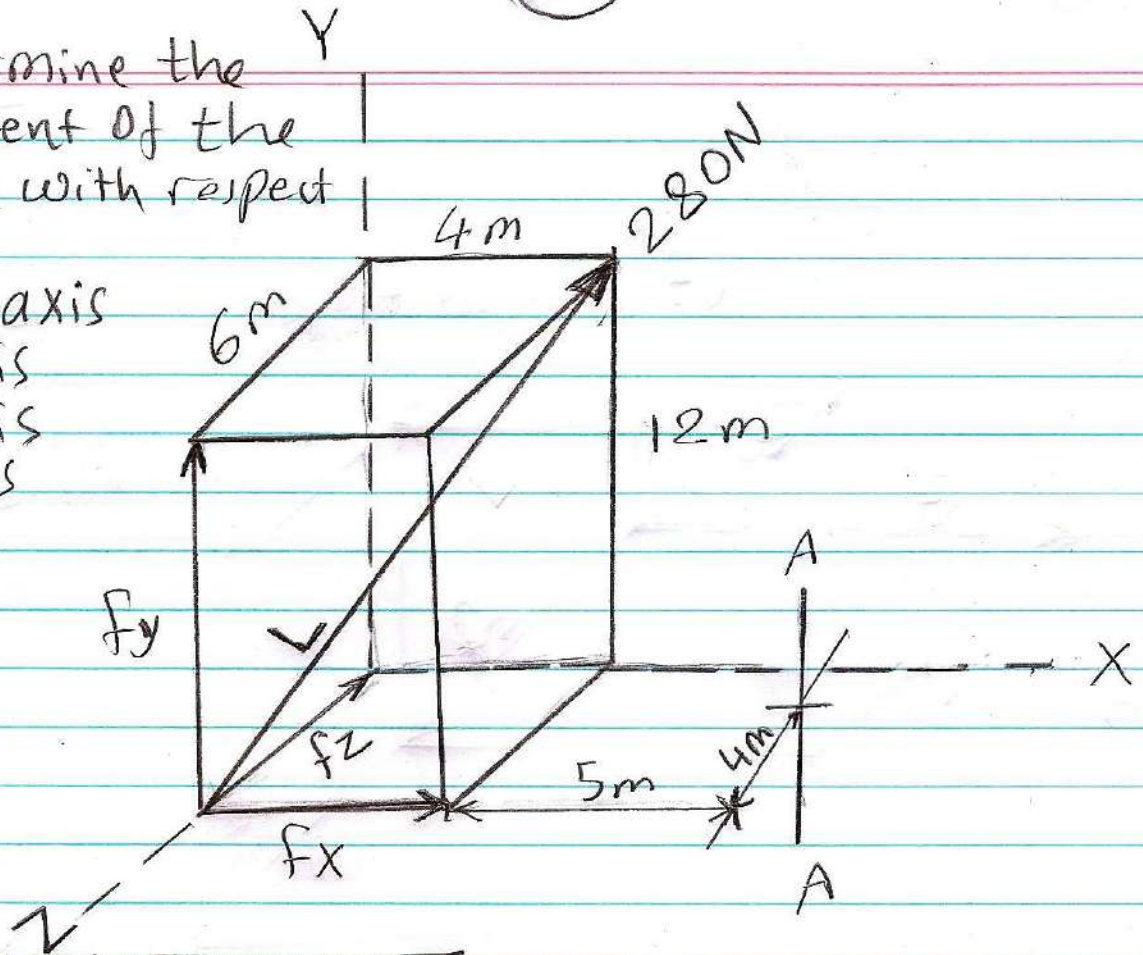 Y
mine the
ent Of the
with respect
axis
is
is
s
4m
280N
6m
12m
fy
L
fz
fx
5m
4m
A
A
X
Z